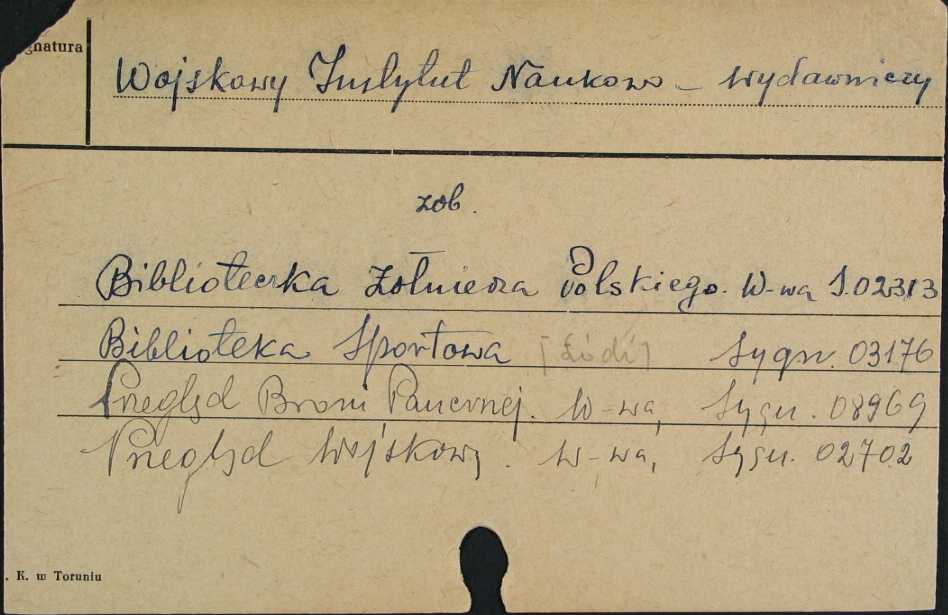 gnatura
Wojskowy Instytut Naukowo - Wydawniczy
zob.
Biblioteczka Żołnierza Polskiego. W-wa S.02313
Biblioteka Sportowa [Łódź] Sygn. 03176
Przegląd Broni Pancernej. W-wa, Sygn. 08969
Przegląd Wojskowy. W-wa, Sygn. 02702
. K. w Toruniu